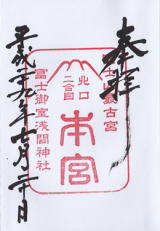 奉拝
士山最古宮
北口
二合目
本宮
冨士御室浅間神社
平成二十九年七月二十日